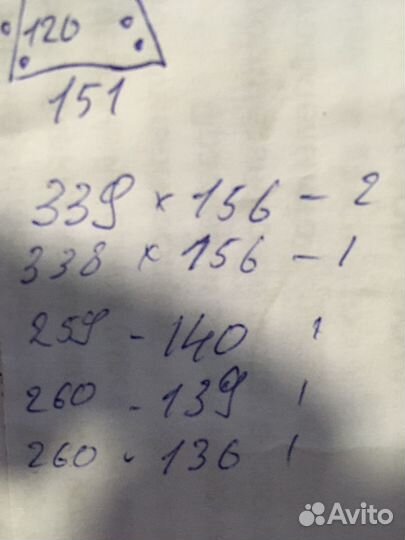 120
151
339 × 156 - 2
338 × 156 - 1
259 - 140 1
260 - 139 1
260 - 136 1
Avito